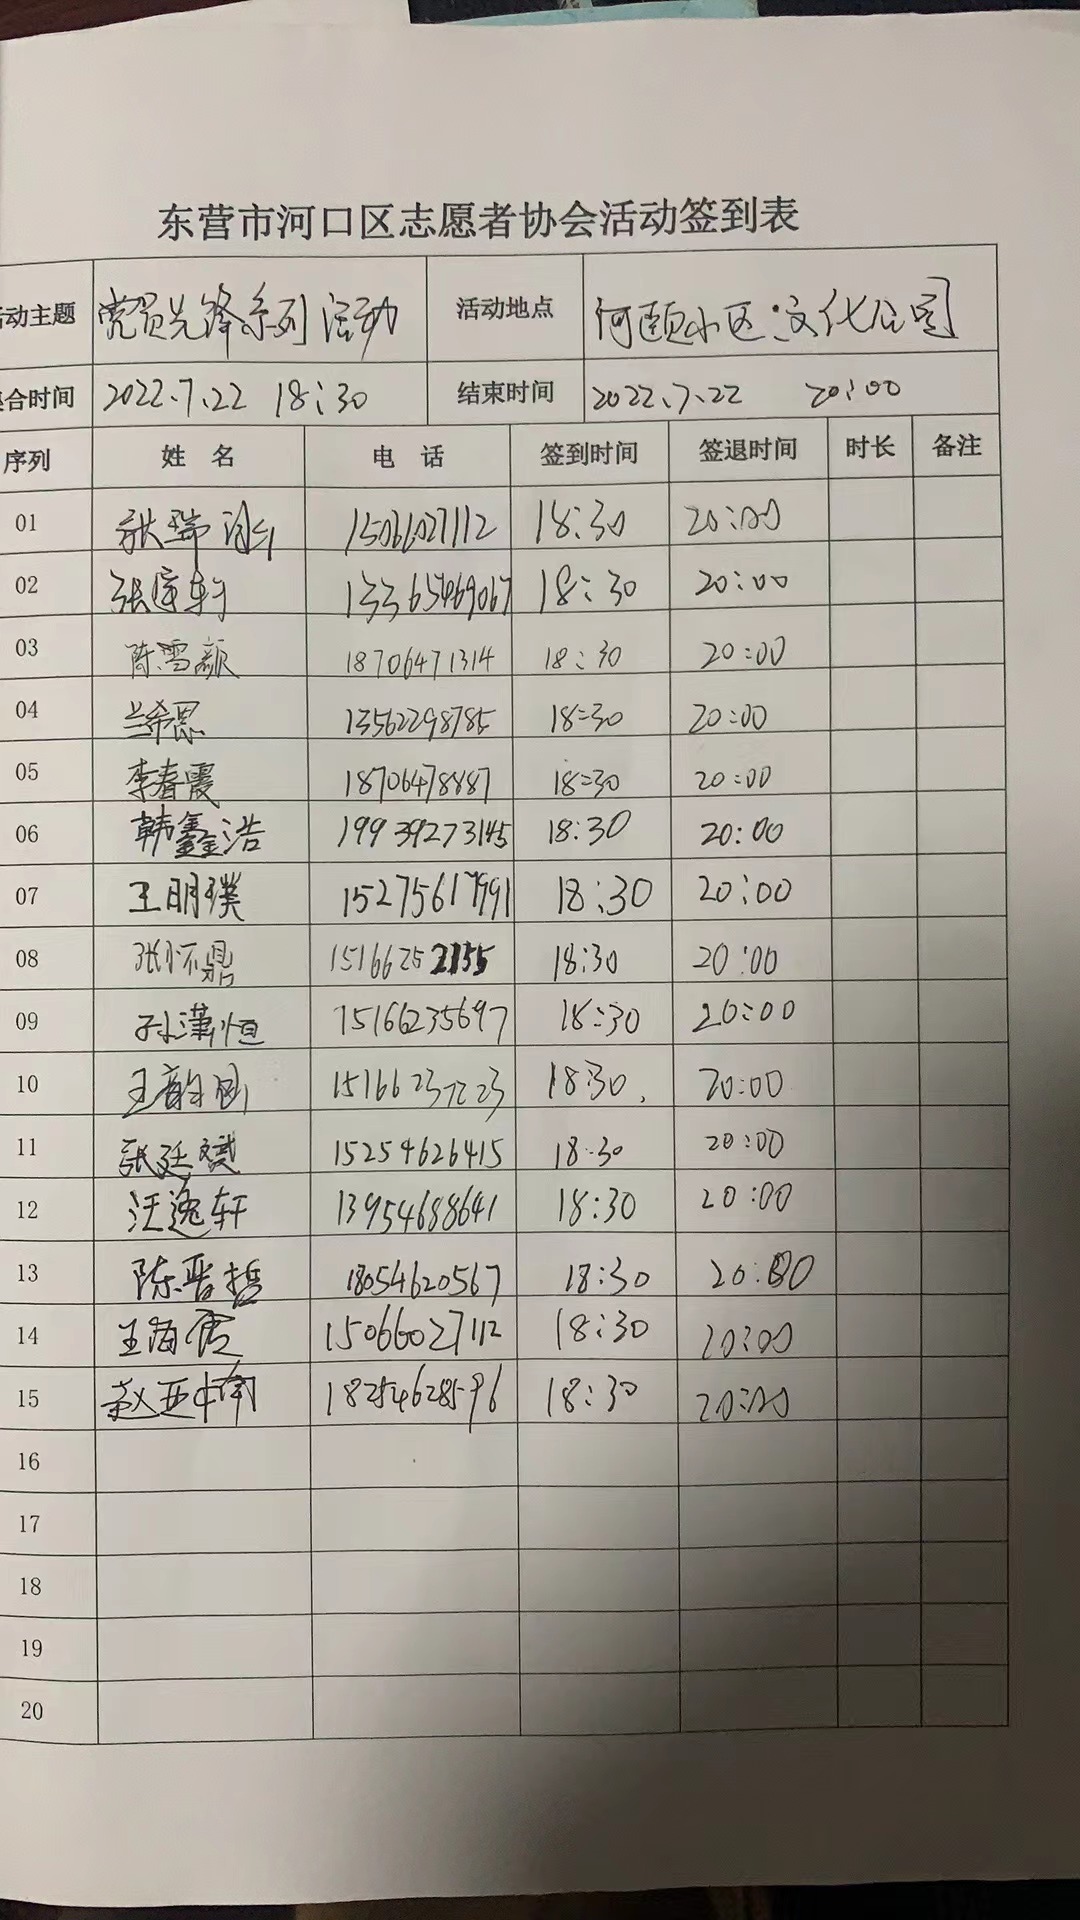 东营市河口区志愿者协会活动签到表
动主题 党员先锋系列活动 活动地点 河颐小区·文化公园
合时间 2022.7.22 18:30 结束时间 2022.7.22 20:00
序列 姓 名 电 话 签到时间 签退时间 时长 备注
01 张瑞 15066027112 18:30 20:00
02 张 轩 13365469067 18:30 20:00
03 陈雪颜 18706471314 18:30 20:00
04 兰希恩 13562298785 18:30 20:00
05 李春霞 18706478887 18:30 20:00
06 韩鑫浩 19939273145 18:30 20:00
07 王明璞 15275617991 18:30 20:00
08 张怀鼎 15166252155 18:30 20:00
09 孙潇恒 15166235697 18:30 20:00
10 王韵 15166237223 18:30 20:00
11 张廷 15254626415 18:30 20:00
12 汪逸轩 13954688641 18:30 20:00
13 陈晋哲 18054620567 18:30 20:00
14 王海 15066027112 18:30 20:00
15 赵亚 18254628596 18:30 20:00
16
17
18
19
20